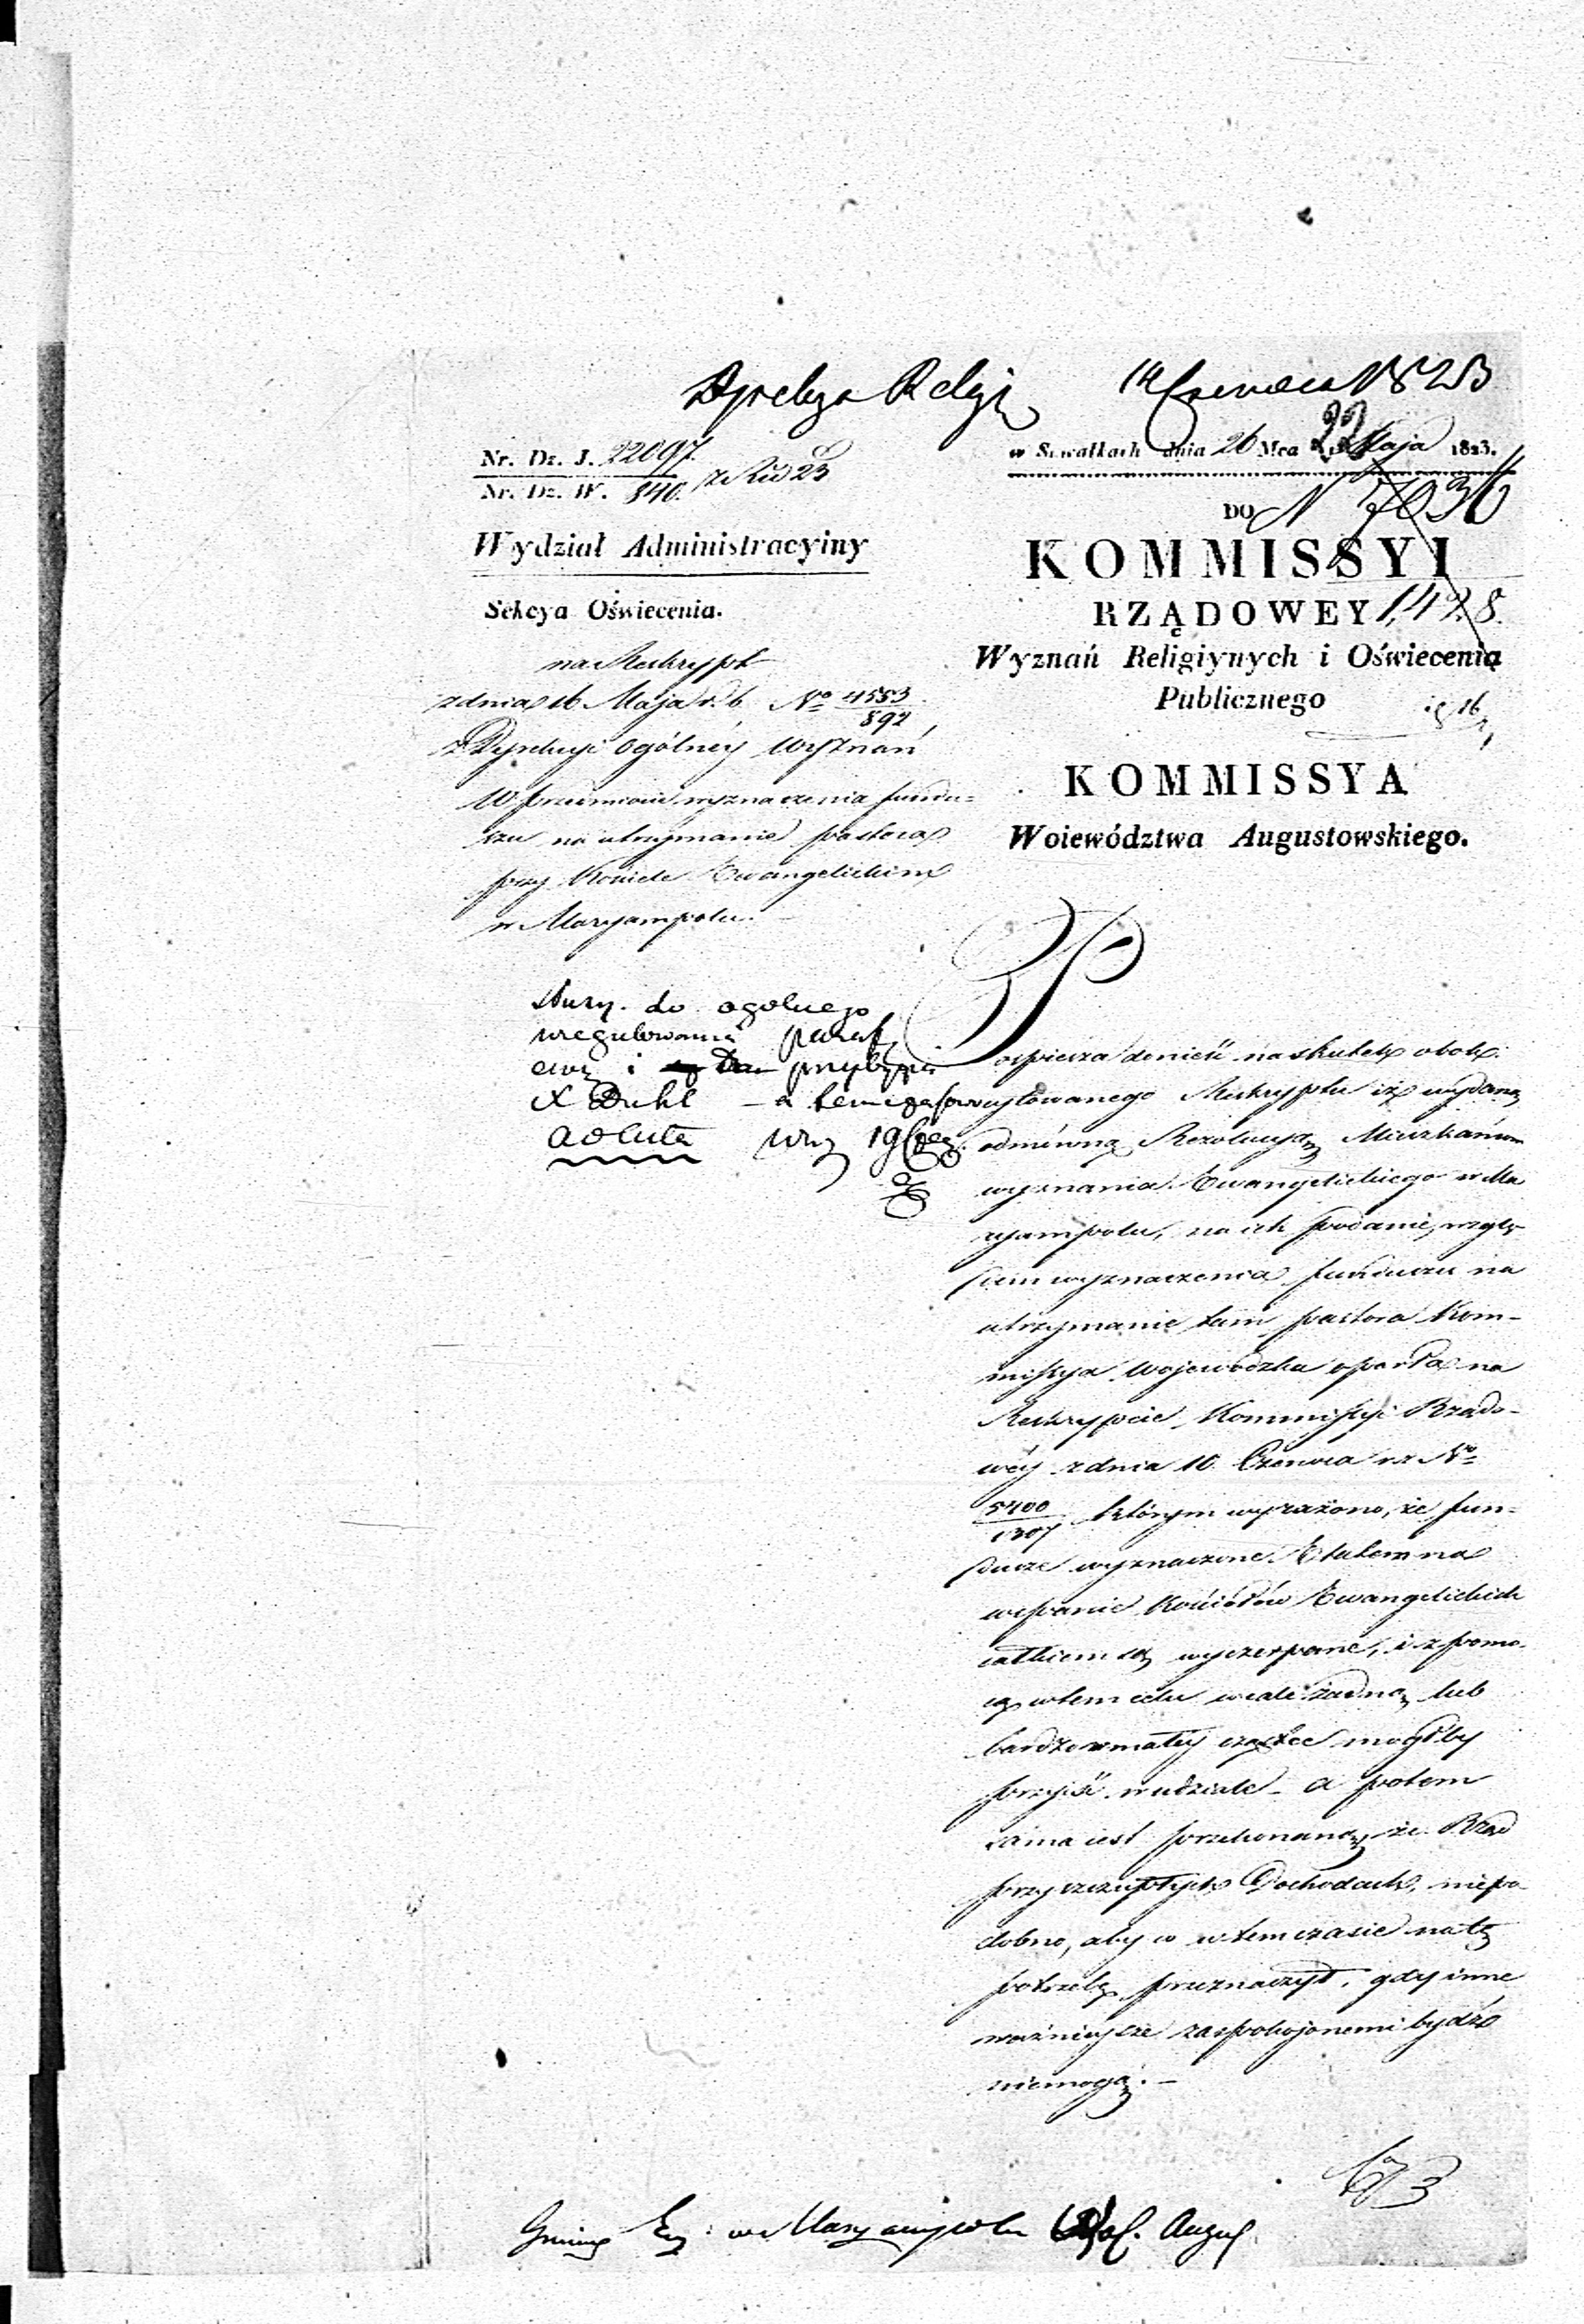 Dyrekcya Religi 14 Czerwca 1823
Nr. Dz. J. 22097.
Nr. Dz. W. 840.
w Suwałkach dnia 26 Mca Maja 1823.
DO N 7036
Wydział Administracyiny
KOMMISSYI
Sekcya Oświecenia.
RZĄDOWEY 1,428.
Wyznań Religiynych i Oświecenia
Publicznego
na Reskrypt
z dnia 16 Maja r. b. No 4553/892,
z Dyrekcyi Ogólney Wyznań
W przedmiocie wyznaczenia fundu=
szu na utrzymanie pastora
przy Kościele Ewangelickim
w Maryampolu.
KOMMISSYA
Woiewództwa Augustowskiego.
służy. do ogolnego
uregulowania paraf
ew i przyłączyć
X
ad acta 19
Pospiesza donieść na skutek obok
cytowanego Reskryptu iż wydaną
odmówną Rezolucyą Mieszkańcom
wyznania Ewangelickiego w Ma
ryampolu, na ich podanie, wzglę
dem wyznaczenia funduszu na
utrzymanie tam pastora Kom-
missya Wojewódzka oparła na
Reskrypcie Kommissyi Rządo-
wéy z dnia 10 Czerwca r. z. No
5400/1307 którym wyrażono, że fun-
dusze wyznaczone Etatem na
wsparcie Kościołów Ewangelickich
całkiem są wyczerpane, i z pomo-
cą w tem celu wcale żadną, lub
bardzo w małey cząstce mogłby
przyjść w udziale - a potem
sama iest przekonaną, że Rząd
przy szczupłych Dochodach, niepo-
dobno, aby co w tem czasie na tę
potrzebę przeznaczył, gdy inne
ważnieysze zaspokojonemi bydź
niemogą. -
673
Gmina Ew: w Maryampolu Augus